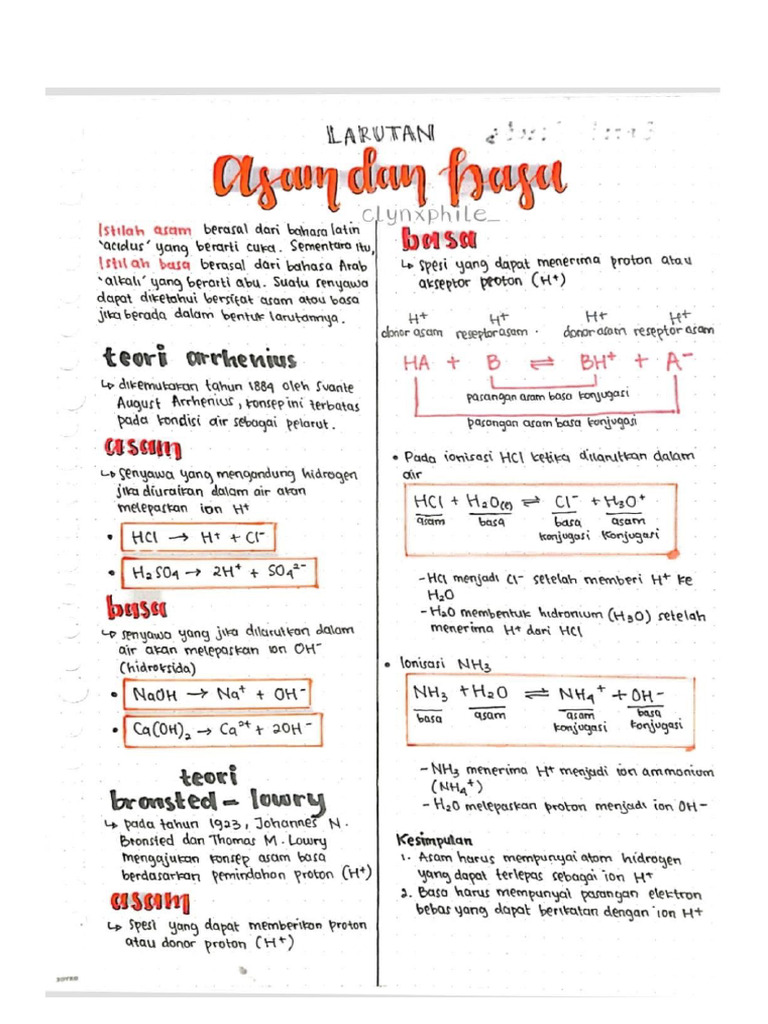 LARUTAN
Asam dan basa
clynxphile_
Istilah asam berasal dari bahasa latin
'acidus' yang berarti cuka. Sementara itu,
Istilah basa berasal dari bahasa Arab
'alkali' yang berarti abu. Suatu senyawa
dapat diketahui bersifat asam atau basa
jika berada dalam bentuk larutannya.
teori arrhenius
↳ dikemukakan tahun 1884 oleh Svante
August Arrhenius, konsep ini terbatas
pada kondisi air sebagai pelarut.
asam
↳ senyawa yang mengandung hidrogen
jika diuraikan dalam air akan
melepaskan ion H⁺
• HCl → H⁺ + Cl⁻
• H₂SO₄ → 2H⁺ + SO₄²⁻
basa
↳ senyawa yang jika dilarutkan dalam
air akan melepaskan ion OH⁻
(hidroksida)
• NaOH → Na⁺ + OH⁻
• Ca(OH)₂ → Ca²⁺ + 2OH⁻
teori
bronsted – lowry
↳ pada tahun 1923, Johannes N.
Bronsted dan Thomas M. Lowry
mengajukan konsep asam basa
berdasarkan pemindahan proton (H⁺)
asam
↳ Spesi yang dapat memberikan proton
atau donor proton (H⁺)
basa
↳ Spesi yang dapat menerima proton atau
akseptor proton (H⁺)
H⁺ H⁺ H⁺ H⁺
donor asam reseptor asam . donor asam reseptor asam
HA + B ⇌ BH⁺ + A⁻
pasangan asam basa konjugasi
pasangan asam basa konjugasi
• Pada ionisasi HCl ketika dilarutkan dalam
air
HCl + H₂O(l) ⇌ Cl⁻ + H₃O⁺
asam basa basa asam
konjugasi konjugasi
- HCl menjadi Cl⁻ setelah memberi H⁺ ke
H₂O
- H₂O membentuk hidronium (H₃O) setelah
menerima H⁺ dari HCl
• Ionisasi NH₃
NH₃ + H₂O ⇌ NH₄⁺ + OH⁻
basa asam asam basa
konjugasi konjugasi
- NH₃ menerima H⁺ menjadi ion ammonium
(NH₄⁺)
- H₂O melepaskan proton menjadi ion OH⁻
Kesimpulan
1. Asam harus mempunyai atom hidrogen
yang dapat terlepas sebagai ion H⁺
2. Basa harus mempunyai pasangan elektron
bebas yang dapat berikatan dengan ion H⁺